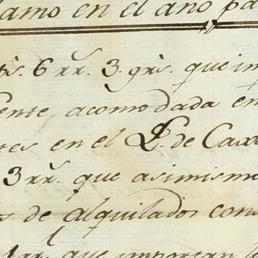 lamo en el año pa
tis. 6 rr. 3. grs. que im
ente acomodada en
tes en el L. de Cax
3 rr. que asimism
s de alquilados con
1 rr. que importan l